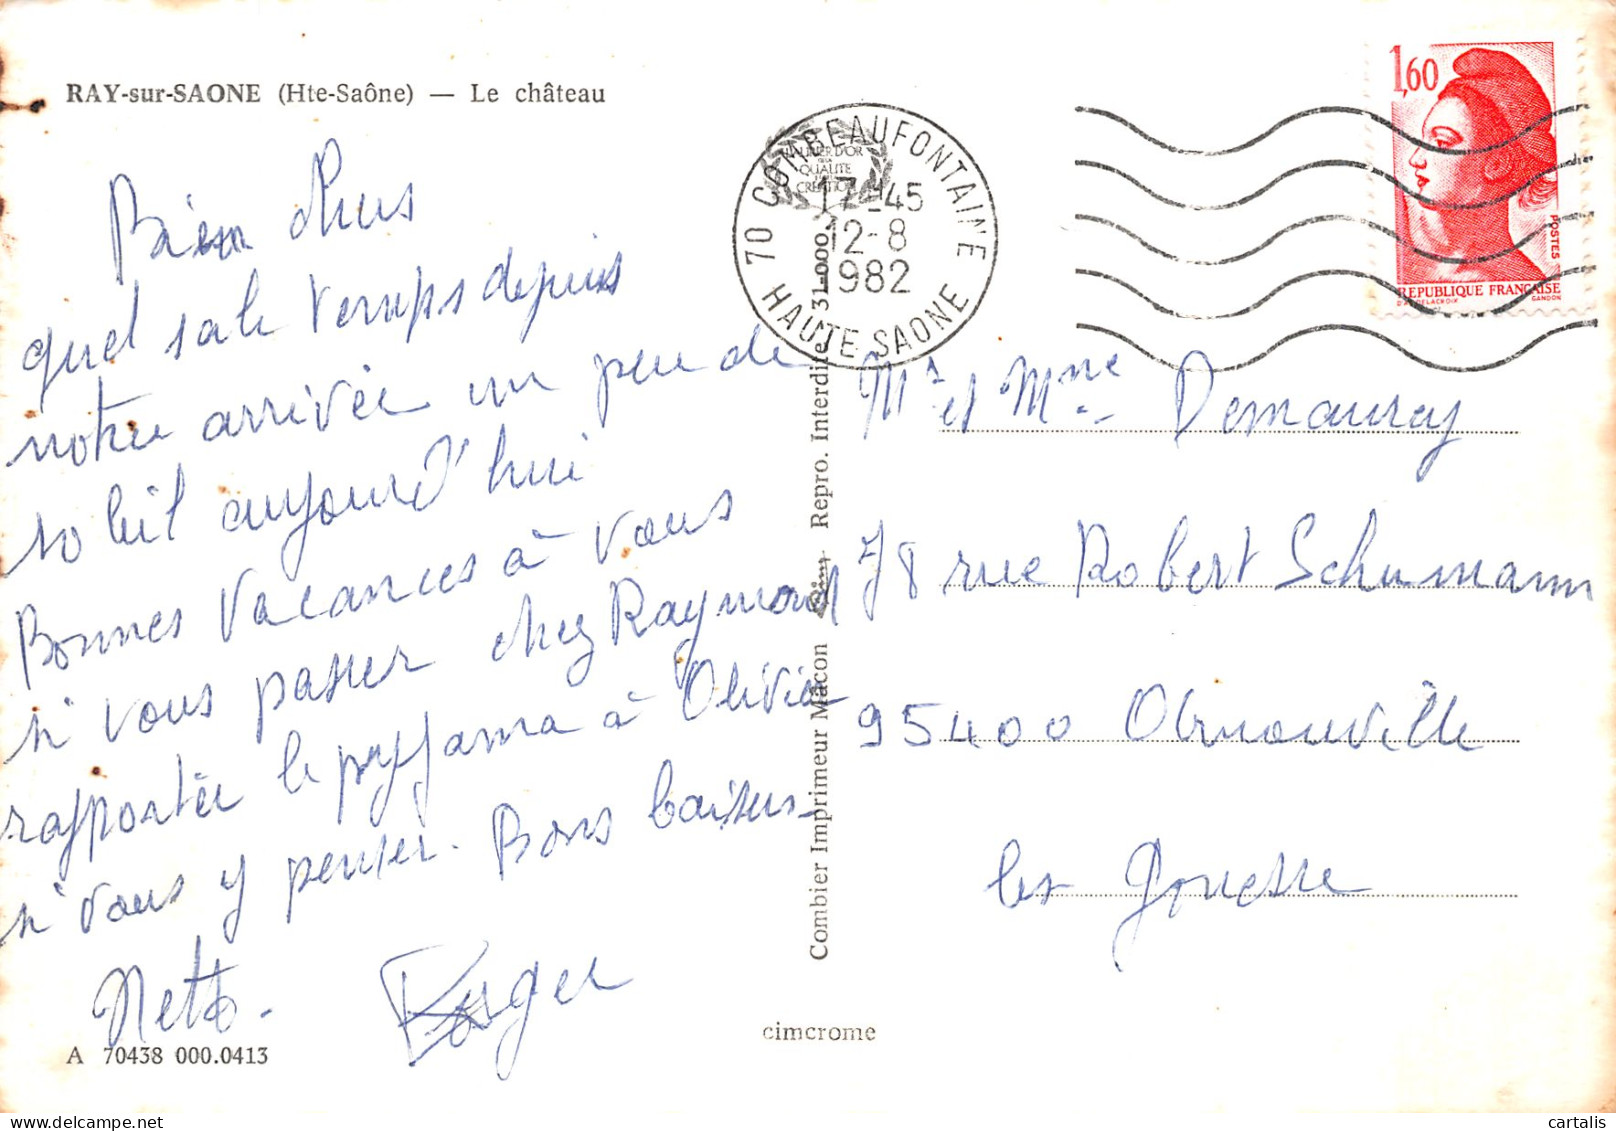 RAY-sur-SAONE (Hte-Saône) — Le château
Bien
quel sale temps depuis
notre arrivée un peu de
soleil aujourd'hui
Bonnes vacances à vous
si vous passer chez Raymond
rapporter le pyjama à Olivia
si vous y penser. Bons baisers
Netto. Roger
A 70438 000.0413
cimcrome
Combier Imprimeur Mâcon Repro. Interdite 31-000
70 COMBEAUFONTAINE
17-45
12-8
1982
HAUTE SAONE
LAURIER D'OR
DE LA
QUALITE
CREATION
1,60
POSTES
REPUBLIQUE FRANÇAISE
D'AP. DELACROIX GANDON
Mr et Mme Demauray
78 rue Robert Schumann
95400 Arnouville
les Gonesse
cartalis